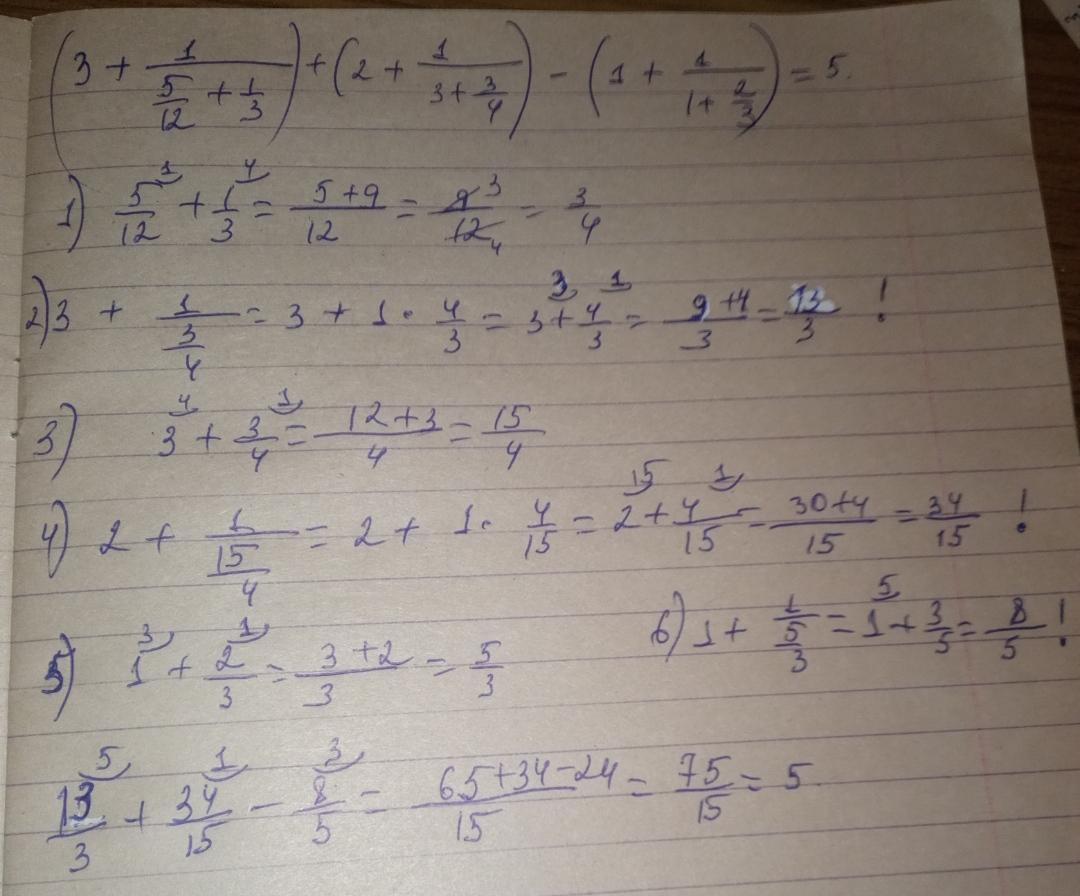 (3 + 1/(5/12 + 1/3)) + (2 + 1/(3 + 3/4)) - (1 + 1/(1 + 2/3)) = 5.
1) 5/12 ^1 + 1/3 ^4 = (5+9)/12 = 9 3/12 4 = 3/4
2) 3 + 1/(3/4) = 3 + 1 · 4/3 = 3 ^3 + 4/3 ^1 = (9+4)/3 = 13/3 !
3) 3 ^4 + 3/4 ^1 = (12+3)/4 = 15/4
4) 2 + 1/(15/4) = 2 + 1 · 4/15 = 2 ^15 + 4/15 ^1 = (30+4)/15 = 34/15 !
5) 1 ^3 + 2/3 ^1 = (3+2)/3 = 5/3
6) 1 + 1/(5/3) = 1 ^5 + 3/5 = 8/5 !
13/3 ^5 + 34/15 ^1 - 8/5 ^3 = (65+34-24)/15 = 75/15 = 5